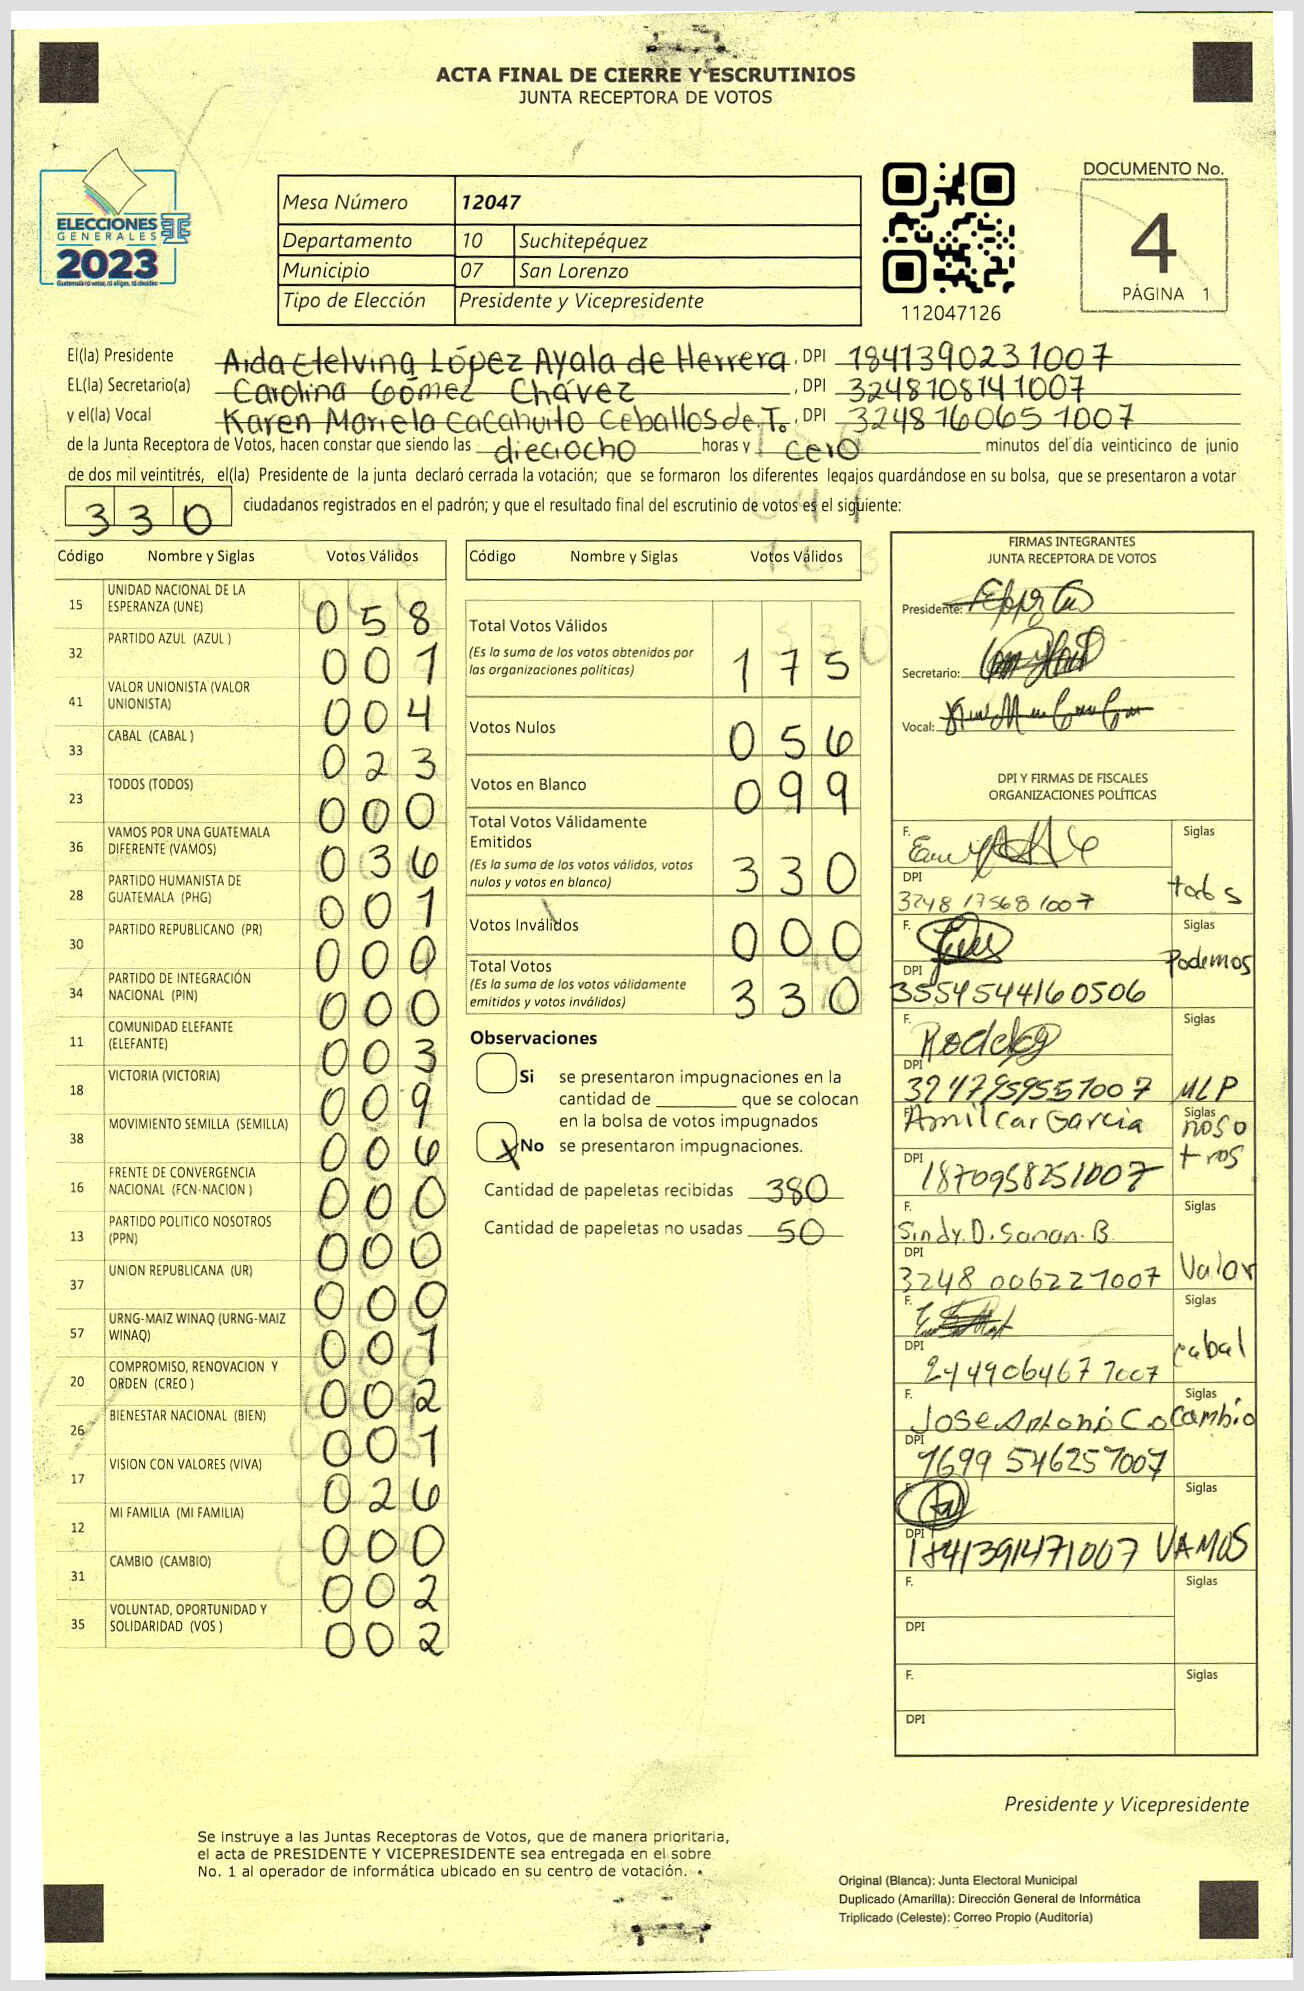 ACTA FINAL DE CIERRE Y ESCRUTINIOS
JUNTA RECEPTORA DE VOTOS
ELECCIONES
GENERALES
2023
Guatemala tú votas, tú eliges, tú decides
Mesa Número 12047
Departamento 10 Suchitepéquez
Municipio 07 San Lorenzo
Tipo de Elección Presidente y Vicepresidente
112047126
DOCUMENTO No.
4
PÁGINA 1
El(la) Presidente Aida Etelvina López Ayala de Herrera, DPI 1841390231007
EL(la) Secretario(a) Carolina Gómez Chávez, DPI 3248108141007
y el(la) Vocal Karen Mariela Cacahuito Ceballos de T., DPI 3248160651007
de la Junta Receptora de Votos, hacen constar que siendo las dieciocho horas y cero minutos del día veinticinco de junio
de dos mil veintitrés, el(la) Presidente de la junta declaró cerrada la votación; que se formaron los diferentes legajos guardándose en su bolsa, que se presentaron a votar
330 ciudadanos registrados en el padrón; y que el resultado final del escrutinio de votos es el siguiente:
Código Nombre y Siglas Votos Válidos
15 UNIDAD NACIONAL DE LA
ESPERANZA (UNE) 058
32 PARTIDO AZUL (AZUL ) 001
41 VALOR UNIONISTA (VALOR
UNIONISTA) 004
33 CABAL (CABAL ) 023
23 TODOS (TODOS) 000
36 VAMOS POR UNA GUATEMALA
DIFERENTE (VAMOS) 036
28 PARTIDO HUMANISTA DE
GUATEMALA (PHG) 001
30 PARTIDO REPUBLICANO (PR) 000
34 PARTIDO DE INTEGRACIÓN
NACIONAL (PIN) 000
11 COMUNIDAD ELEFANTE
(ELEFANTE) 003
18 VICTORIA (VICTORIA) 009
38 MOVIMIENTO SEMILLA (SEMILLA) 006
16 FRENTE DE CONVERGENCIA
NACIONAL (FCN-NACION ) 000
13 PARTIDO POLITICO NOSOTROS
(PPN) 000
37 UNION REPUBLICANA (UR) 000
57 URNG-MAIZ WINAQ (URNG-MAIZ
WINAQ) 001
20 COMPROMISO, RENOVACION Y
ORDEN (CREO ) 002
26 BIENESTAR NACIONAL (BIEN) 001
17 VISION CON VALORES (VIVA) 026
12 MI FAMILIA (MI FAMILIA) 000
31 CAMBIO (CAMBIO) 002
35 VOLUNTAD, OPORTUNIDAD Y
SOLIDARIDAD (VOS ) 002
Código Nombre y Siglas Votos Válidos
Total Votos Válidos
(Es la suma de los votos obtenidos por
las organizaciones políticas) 175
Votos Nulos 056
Votos en Blanco 099
Total Votos Válidamente
Emitidos
(Es la suma de los votos válidos, votos
nulos y votos en blanco) 330
Votos Inválidos 000
Total Votos
(Es la suma de los votos válidamente
emitidos y votos inválidos) 330
Observaciones
Si se presentaron impugnaciones en la
cantidad de ________ que se colocan
en la bolsa de votos impugnados
X No se presentaron impugnaciones.
Cantidad de papeletas recibidas 380
Cantidad de papeletas no usadas 50
FIRMAS INTEGRANTES
JUNTA RECEPTORA DE VOTOS
Presidente:
Secretario:
Vocal:
DPI Y FIRMAS DE FISCALES
ORGANIZACIONES POLÍTICAS
F. Siglas
DPI
3248 17568 1007 todos
F. Siglas
Podemos
DPI
3554544160506
F. Siglas
DPI
3247959557007 MLP
F. Amilcar Garcia Siglas
noso
tros
DPI
1870958251007
F. Siglas
Sindy. D. Sanan. B
DPI
3248 006227007 Valor
F. Siglas
cabal
DPI
2449064677007
F. Siglas
Jose Antonio Co Cambio
DPI
1699 546257007
F. Siglas
DPI
1841391471007 VAMOS
F. Siglas
DPI
F. Siglas
DPI
Presidente y Vicepresidente
Se instruye a las Juntas Receptoras de Votos, que de manera prioritaria,
el acta de PRESIDENTE Y VICEPRESIDENTE sea entregada en el sobre
No. 1 al operador de informática ubicado en su centro de votación.
Original (Blanca): Junta Electoral Municipal
Duplicado (Amarilla): Dirección General de Informática
Triplicado (Celeste): Correo Propio (Auditoría)